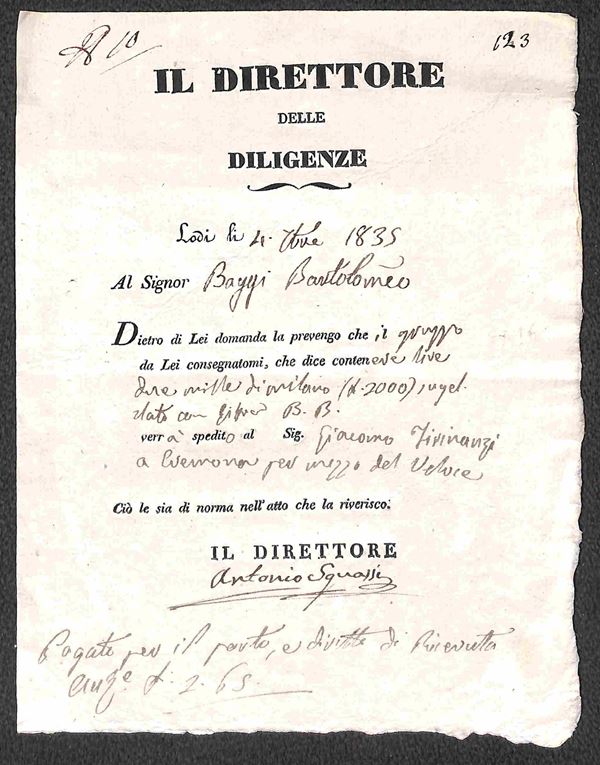 N 10
123
IL DIRETTORE
DELLE
DILIGENZE
Lodi li 4. 8bre 1835
Al Signor Baggi Bartolomeo
Dietro di Lei domanda la prevengo che il gruppo
da Lei consegnatomi, che dice contenere lire
due mille di milano (£.2000), sugel-
lato con B. B.
verrà spedito al Sig. Giacomo
a Cremona per mezzo del Veloce
Ciò le sia di norma nell'atto che la riverisco:
IL DIRETTORE
Antonio Squassi
Pagato per il porto, e diritto di Ricevuta
£. 2.65.